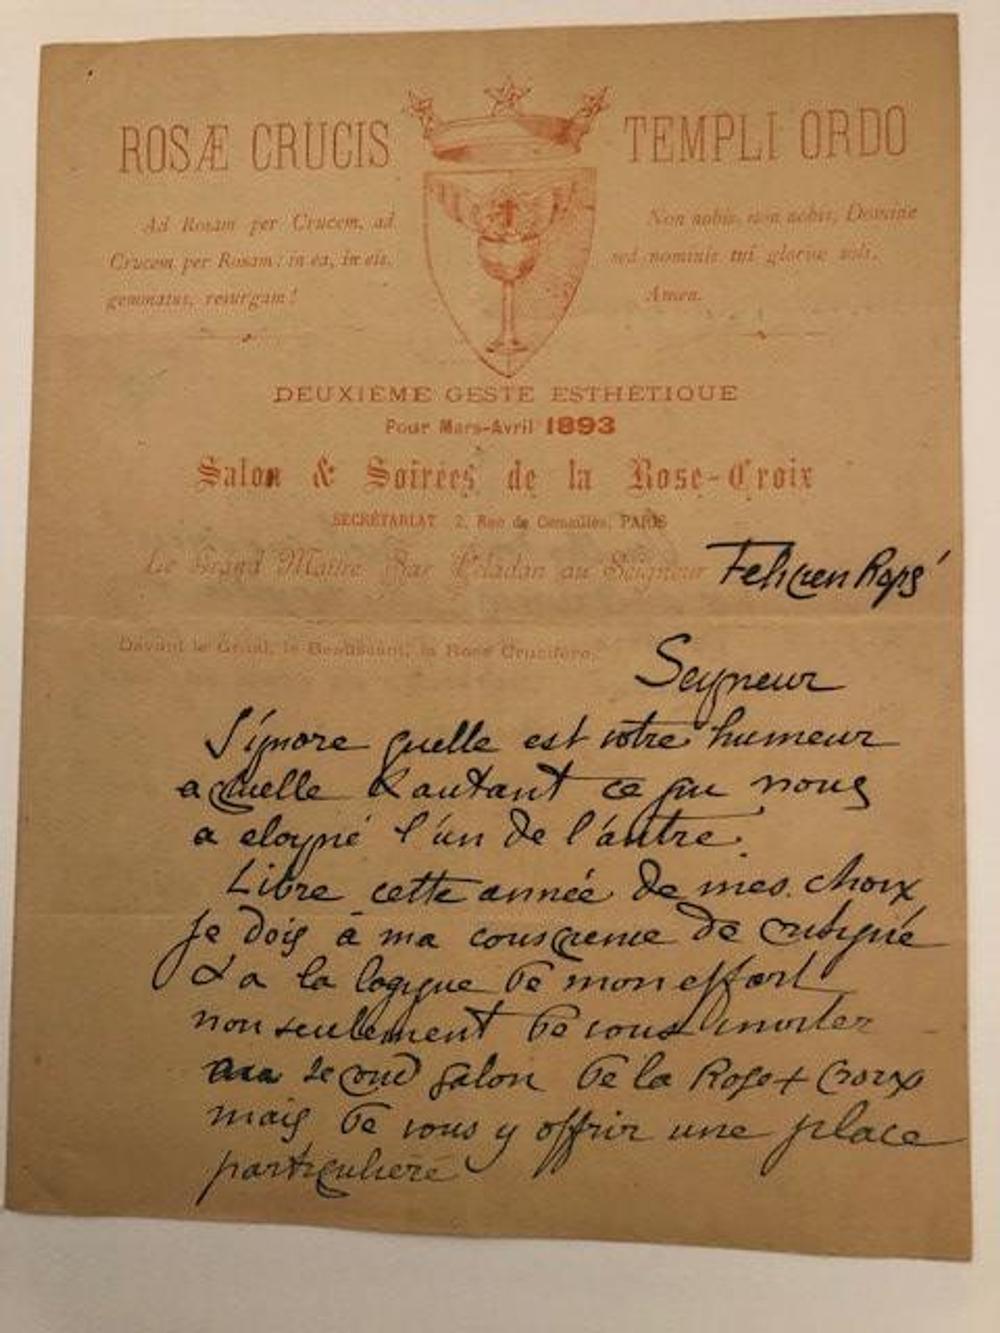 ROSÆ CRUCIS
TEMPLI ORDO
Ad Rosam per Crucem, ad
Crucem per Rosam: in ea, in eis,
gemmatus, resurgam!
Non nobis, non nobis, Domine
sed nominis tui gloriæ soli,
Amen.
DEUXIÈME GESTE ESTHÉTIQUE
Pour Mars-Avril 1893
Salon & Soirées de la Rose-Croix
SECRÉTARIAT 2, Rue de Comailles, PARIS
Le Grand Maître Sar Peladan au Seigneur Felicien Rops
Devant le Graal, le Beauséant, la Rose Crucifère,
Seigneur
J'ignore quelle est votre humeur
actuelle & autant ce qui nous
a eloigné l'un de l'autre.
Libre cette année de mes choix
je dois à ma conscience de
& a la logique de mon effort
non seulement de vous inviter
au second salon de la Rose + Croix
mais de vous y offrir une place
particuliere